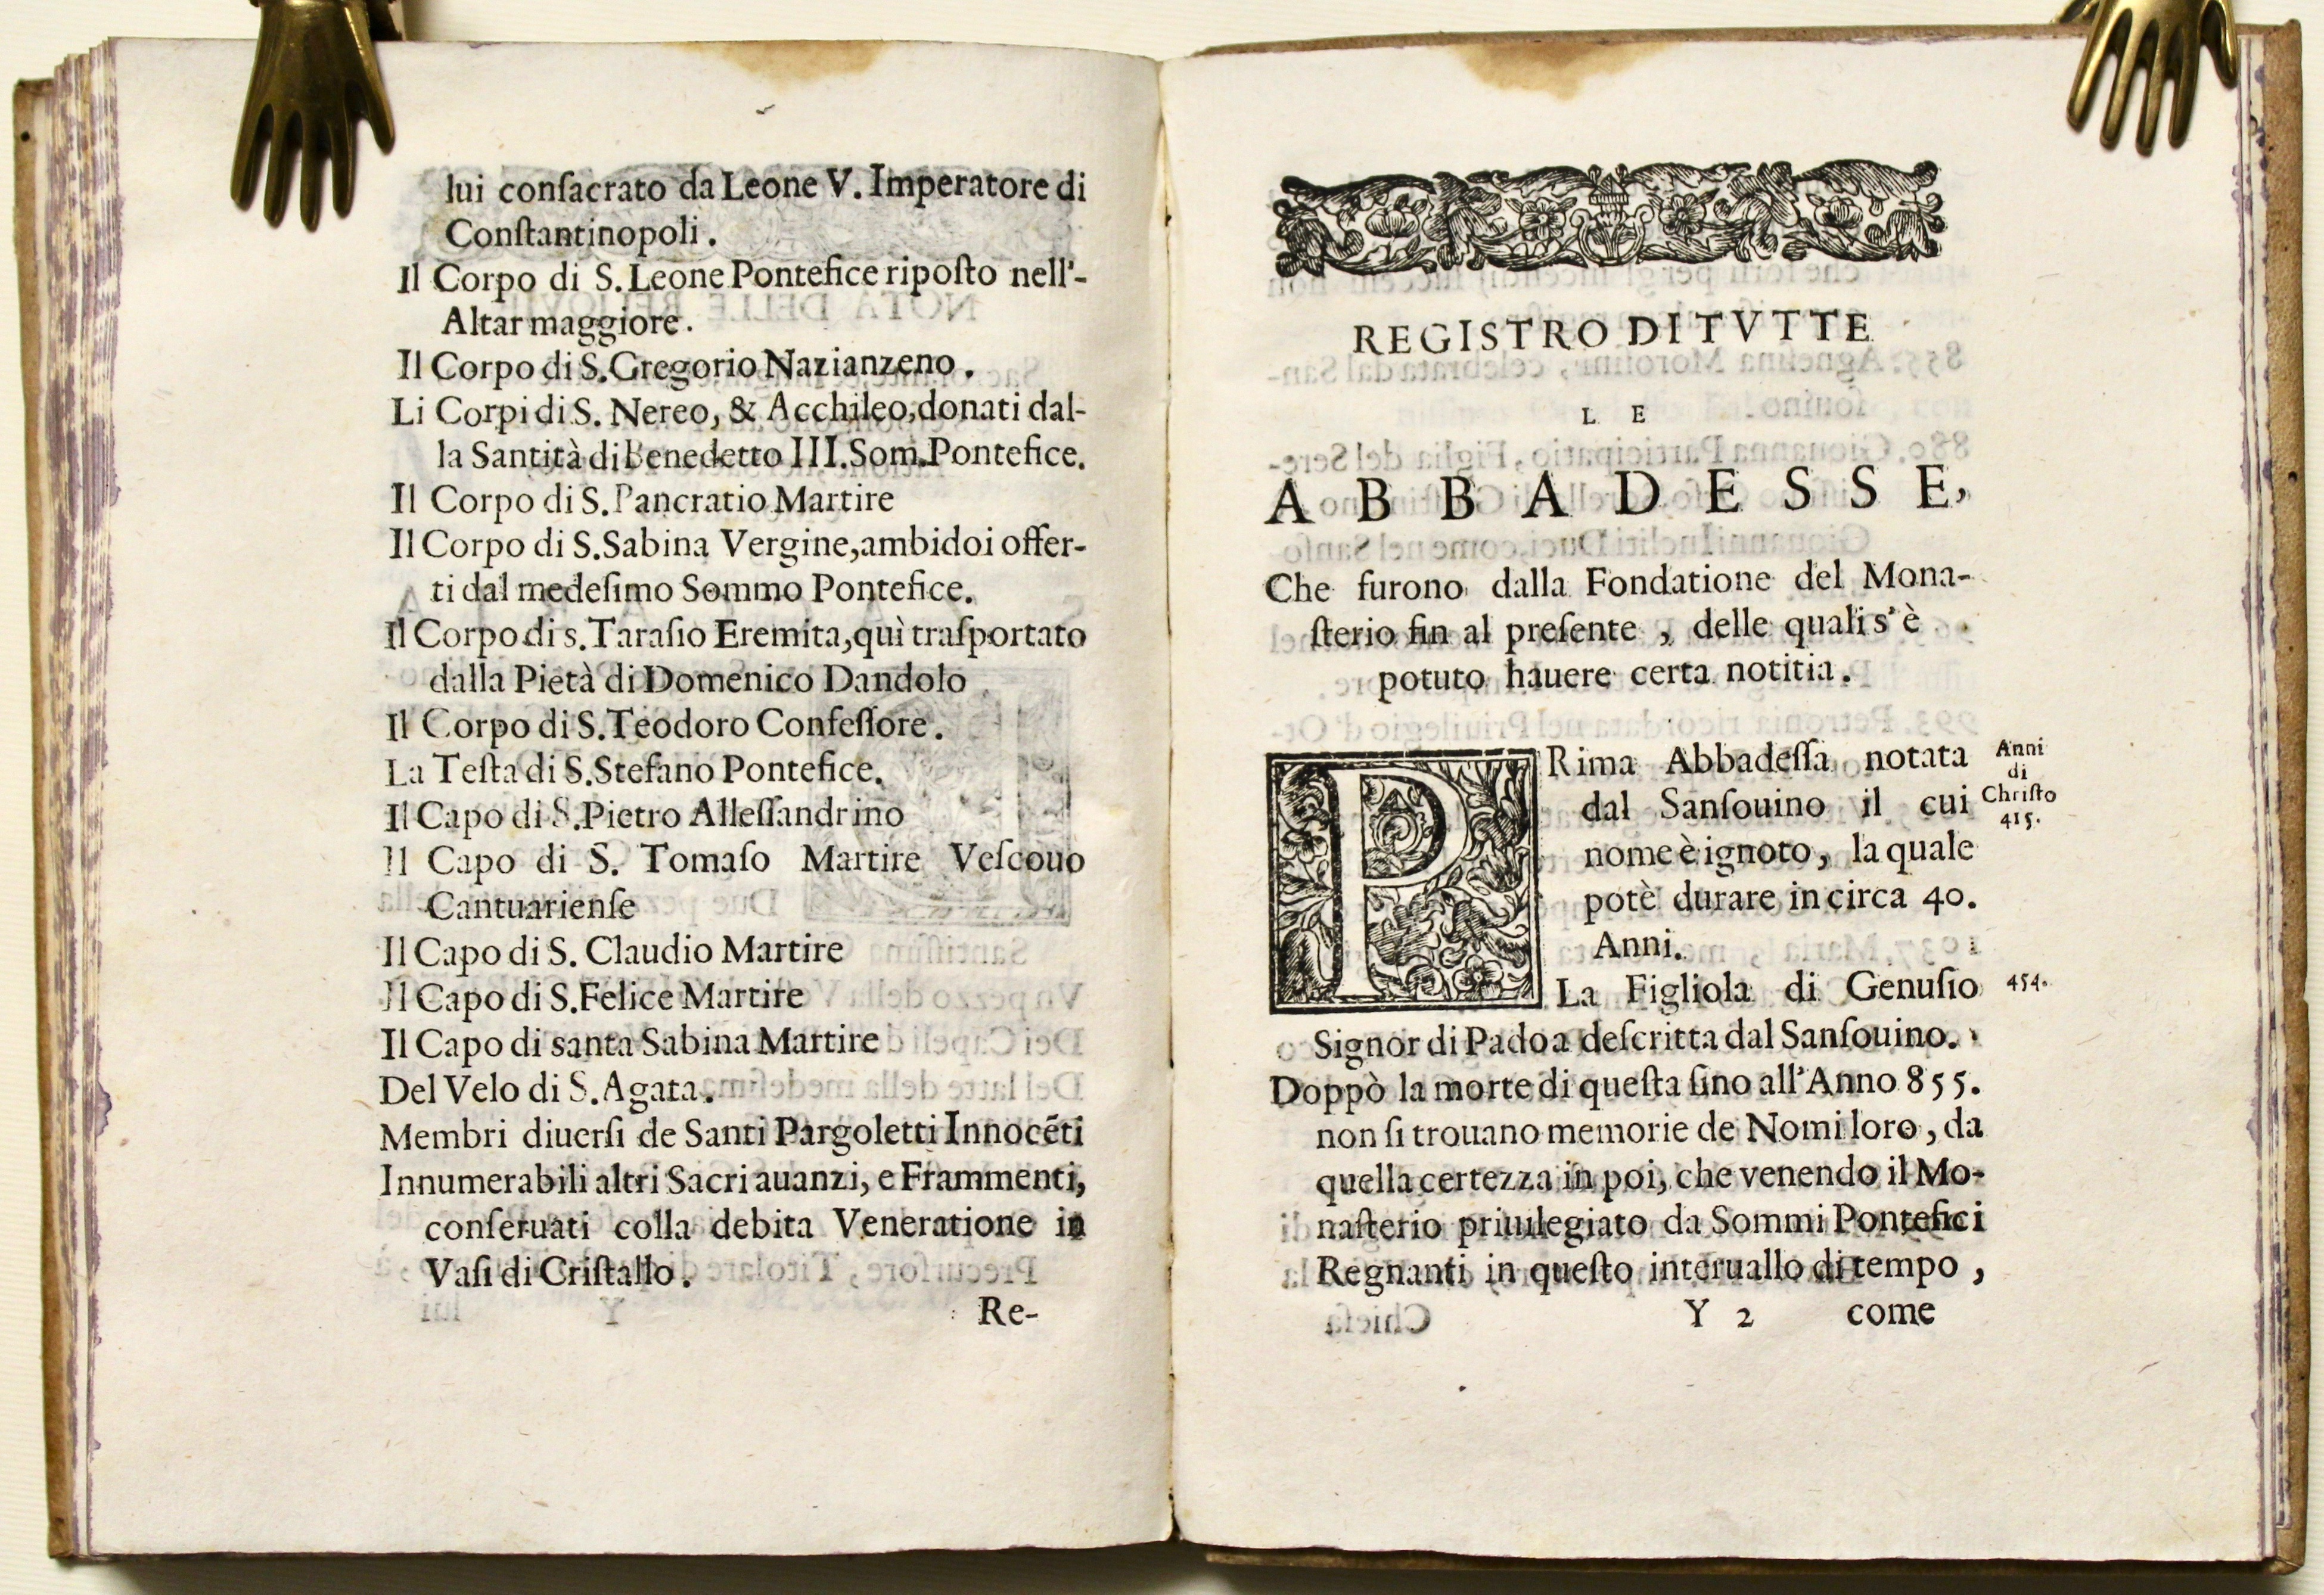 lui conſacrato da Leone V. Imperatore di
Conſtantinopoli.
Il Corpo di S. Leone Pontefice ripoſto nell'-
Altar maggiore.
Il Corpo di S. Gregorio Nazianzeno.
Li Corpi di S. Nereo, & Acchileo, donati dal-
la Santità di Benedetto III. Som. Pontefice.
Il Corpo di S. Pancratio Martire
Il Corpo di S. Sabina Vergine, ambidoi offer-
ti dal medeſimo Sommo Pontefice.
Il Corpo di s. Taraſio Eremita, quì traſportato
dalla Pietà di Domenico Dandolo
Il Corpo di S. Teodoro Confeſſore.
La Teſta di S. Stefano Pontefice.
Il Capo di S. Pietro Alleſſandrino
Il Capo di S. Tomaſo Martire Veſcouo
Cantuarienſe
Il Capo di S. Claudio Martire
Il Capo di S. Felice Martire
Il Capo di santa Sabina Martire
Del Velo di S. Agata.
Membri diuerſi de Santi Pargoletti Innocẽti
Innumerabili altri Sacri auanzi, e Frammenti,
conſeruati colla debita Veneratione in
Vaſi di Criſtallo.
Re-
REGISTRO DI TVTTE
LE
ABBADESSE,
Che furono dalla Fondatione del Mona-
ſterio fin al preſente, delle quali s'è
potuto hauere certa notitia.
PRima Abbadeſſa notata
dal Sanſouino il cui
nome è ignoto, la quale
potè durare in circa 40.
Anni.
Anni
di
Chriſto
415.
La Figliola di Genuſio
454.
Signor di Padoa deſcritta dal Sanſouino.
Doppò la morte di queſta ſino all'Anno 855.
non ſi trouano memorie de Nomi loro, da
quella certezza in poi, che venendo il Mo-
naſterio priuilegiato da Sommi Pontefici
Regnanti in queſto interuallo di tempo,
Y 2
come